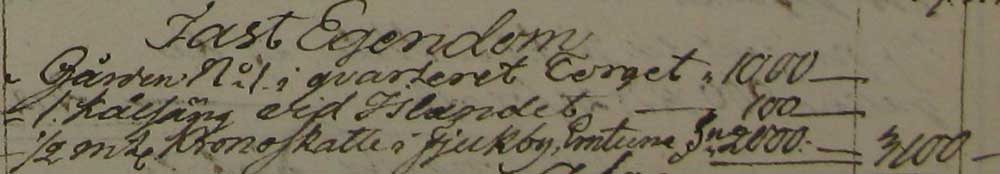 Fast Egendom
Gården No 1. i qvarteret Torget " 1000 —
1. Kålsäng vid Islandet — 100
1/2 mtl Kronoskatte i Fjukby, Emtuna Sn " 2000. — 3100 —